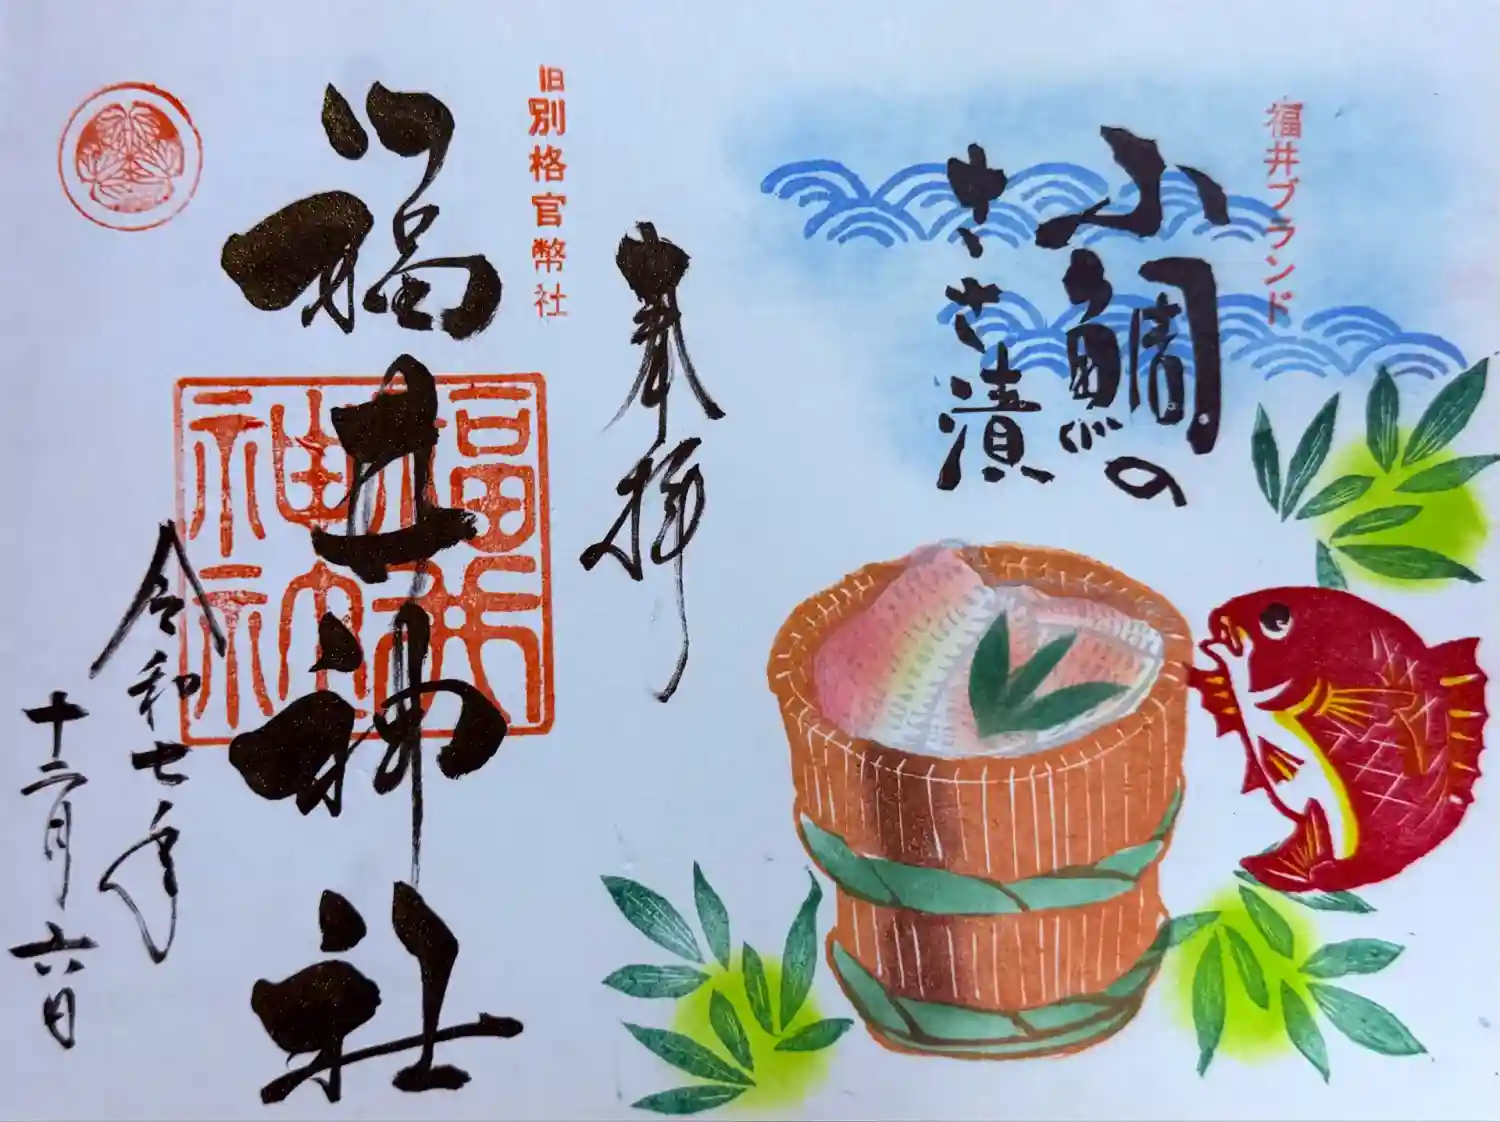 福井ブランド
小鯛の
ささ漬
奉拝
旧別格官幣社
福井神社
福井神社
令和七年
十二月六日